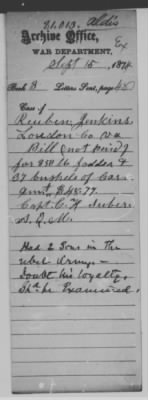 21.013. Aldis
Archive Office, Ex
WAR DEPARTMENT,
Sept 15, 1874
Book B Letters Sent, page
Case of
Reuben Jenkins
Loudon Co. Va
Bill (not
for 850 lb fodder &
37 bushels of Corn
amt. $48.77.
Capt. C. H.
A. Q. M.
Had 2 Sons in the
rebel Army.—
Doubt his loyalty,
Shd. be Examined.